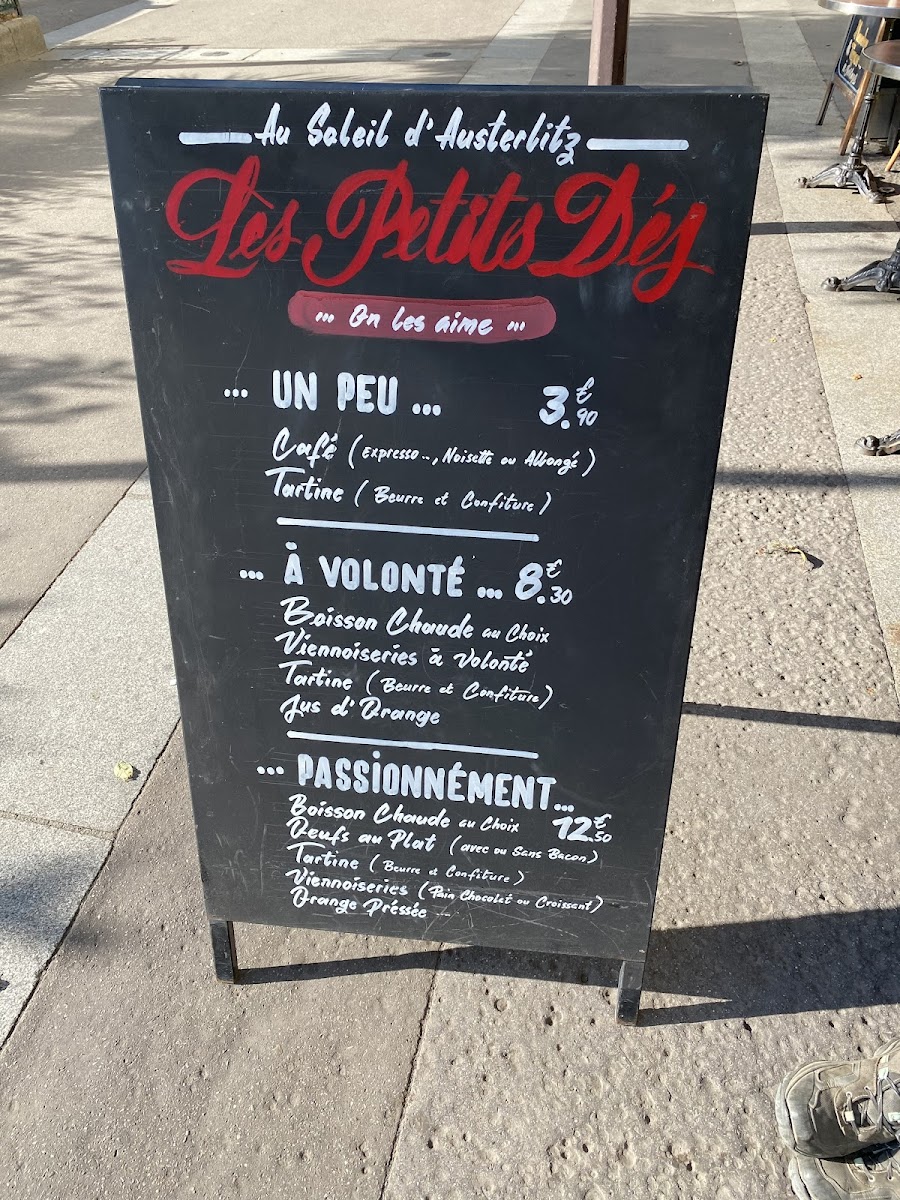 Au Soleil d'Austerlitz
Lès Petits Dés
... On les aime ...
... UN PEU ... 3.€90
Café (Expresso.., Noisette ou Allongé)
Tartine (Beurre et Confiture)
... À VOLONTÉ ... 8.€30
Boisson Chaude au Choix
Viennoiseries à Volonté
Tartine (Beurre et Confiture)
Jus d'Orange
... PASSIONNÉMENT...
Boisson Chaude au Choix 12.€50
Oeufs au Plat (avec ou Sans Bacon)
Tartine (Beurre et Confiture)
Viennoiseries (Pain Chocolat ou Croissant)
Orange Préssée